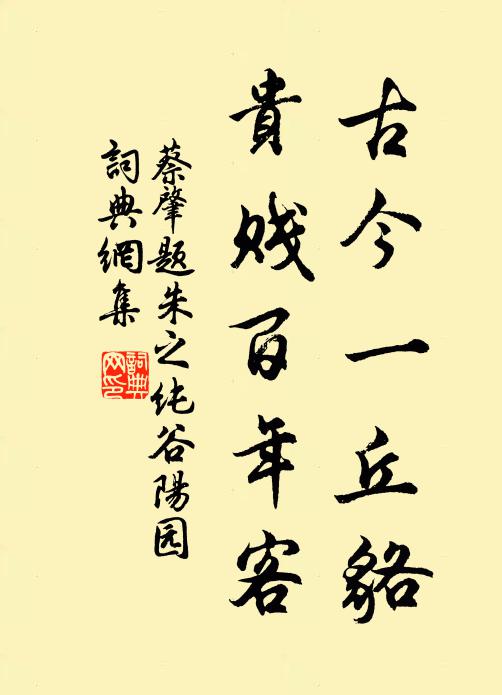 古今一丘貉
貴賤百年客
蔡肇题朱之純谷陽园
詞典網集
詞典网印